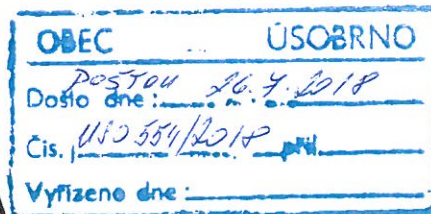 OBEC ÚSOBRNO
POŠTOU 26.7.2018
Došlo dne:
Čís. j. USO 554/2018 příl.
Vyřízeno dne: